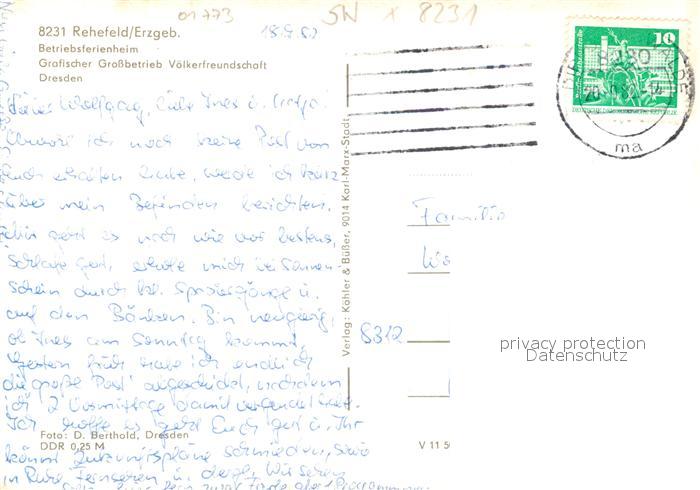 01773
SN x 8231
8231 Rehefeld/Erzgeb.
Betriebsferienheim
Grafischer Großbetrieb Völkerfreundschaft
Dresden
18.9.82
Lieber Wolfgang, liebe Ines u.
Obwohl ich noch keine Post von
Euch erhalten habe, werde ich kurz
über mein Befinden berichten.
Mir geht es nach wie vor bestens,
schlafe gut, erhole mich bei Sonnen-
schein durch kl. Spaziergänge u.
auf den Bänken. Bin neugierig,
ob Ines am Sonntag kommt.
Gestern früh habe ich endlich
die große Post abgeschickt, nachdem
ich 2 Vormittage damit
Ich hoffe es geht Euch gut u. Ihr
könnt Zukunftspläne schmieden, sowie
in Ruhe Fernsehen u. dergl. Wir sehen
Foto: D. Berthold, Dresden
DDR 0,25 M
Verlag: Köhler & Büßer, 9014 Karl-Marx-Stadt
V 11 50
10
DEUTSCHE DEMOKRATISCHE REPUBLIK
ma
Familie
8312
privacy protection
Datenschutz